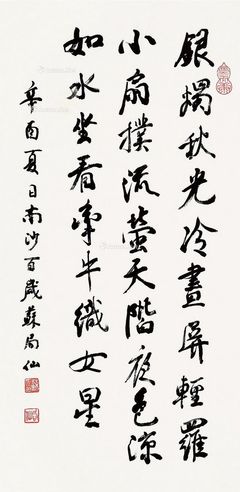 銀燭秋光冷畫屏輕羅
小扇撲流螢天階夜色涼
如水坐看牽牛織女星
辛酉夏日南沙百歲蘇局仙